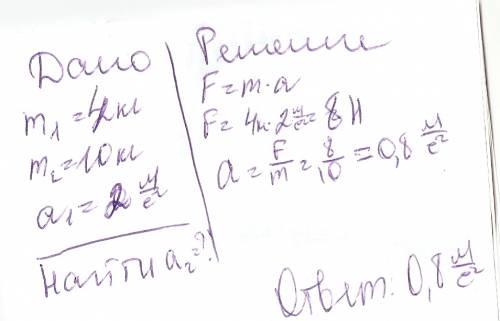 Дано
m₁=4кг
m₂=10кг
a₁=2 м/с²
Найти a₂=?
Решение
F=m·a
F=4кг·2 м/с²=8Н
a=F/m=8/10=0,8 м/с²
Ответ: 0,8 м/с²